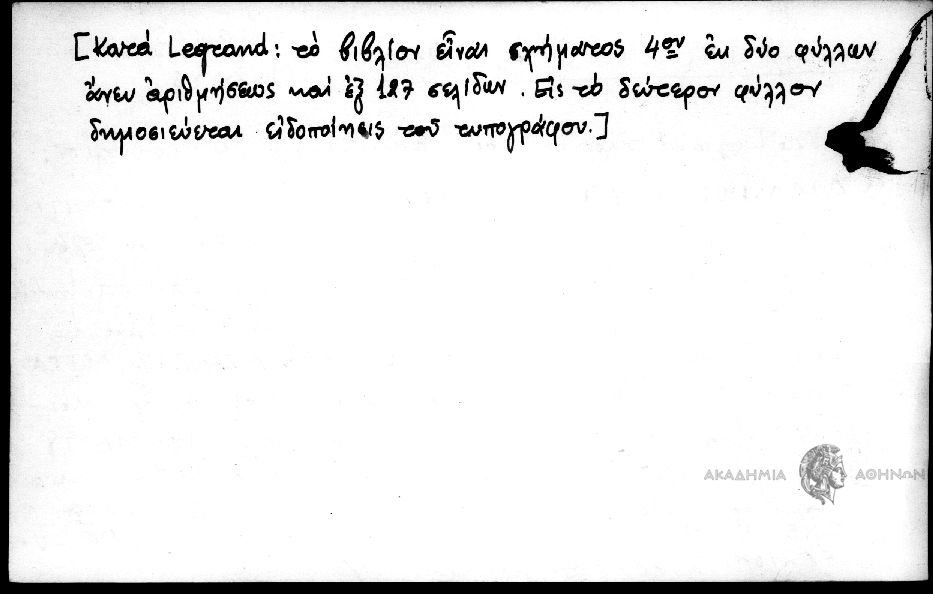 [Κατά Legrand: τὸ βιβλίον εἶναι σχήματος 4ον ἐκ δύο φύλλων
ἄνευ ἀριθμήσεως καί ἐξ 127 σελίδων. Εἰς τὸ δεύτερον φύλλον
δημοσιεύεται εἰδοποίησις τοῦ τυπογράφου.]
ΑΚΑΔΗΜΙΑ ΑΘΗΝΩΝ